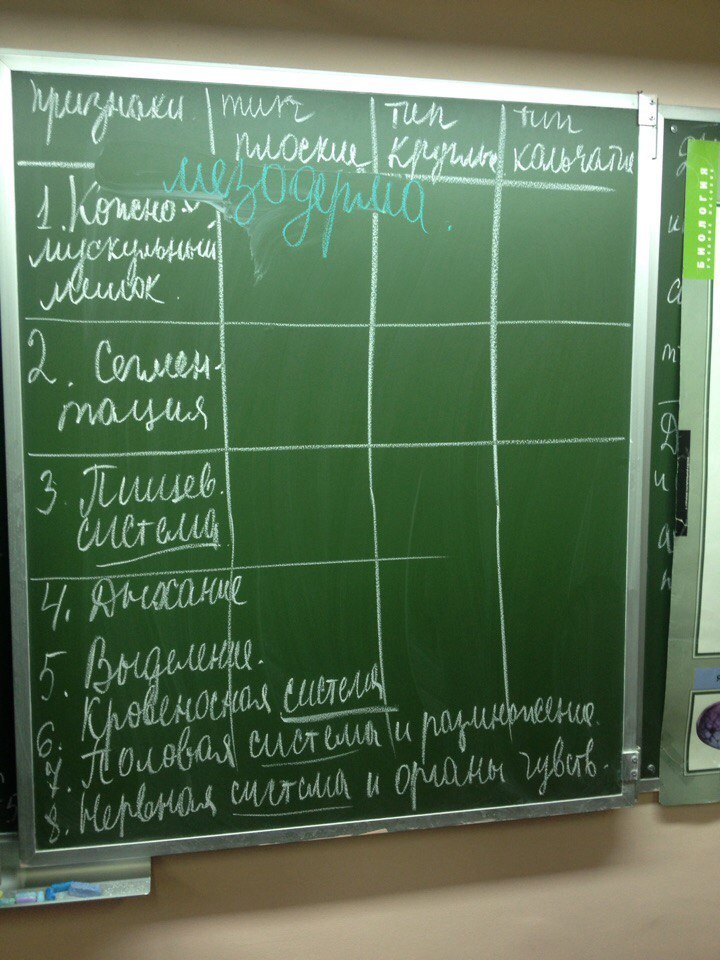 признаки тип тип тип
плоские круглые кольчатые
мезодерма.
1. Кожно-
мускульный
мешок.
2. Сегмен-
тация
3. Пищев.
система
4. Дыхание
5. Выделение.
6. Кровеносная система
7. Половая система и размножение.
8. Нервная система и органы чувств.
БИОЛОГИЯ